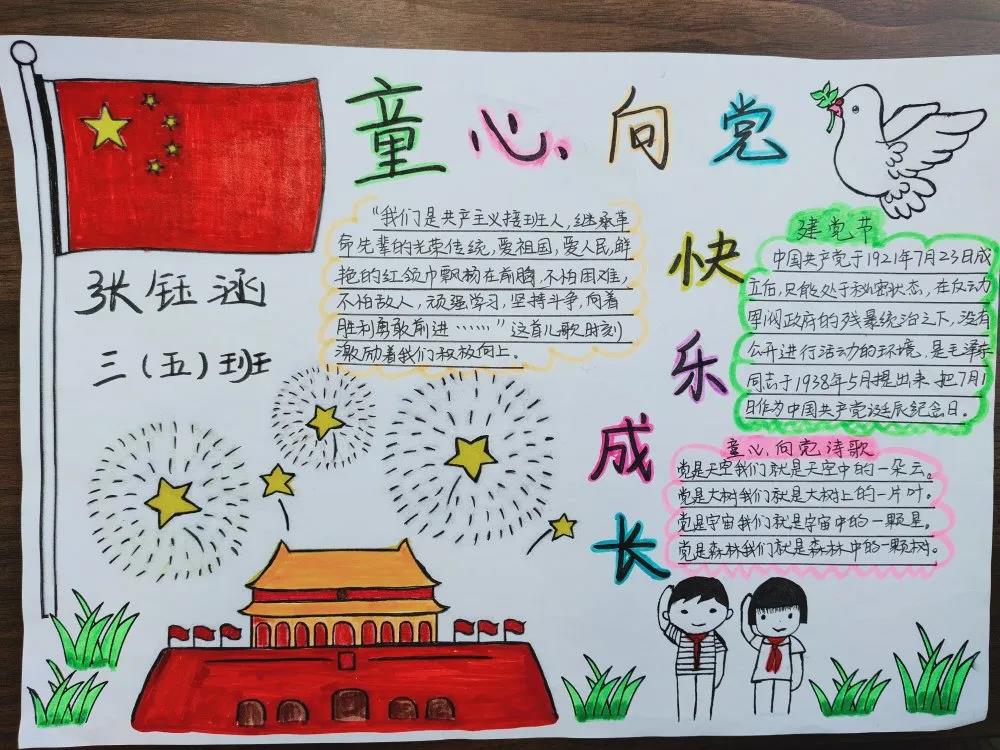 童心向党
快乐成长
张钰涵
三（五）班
“我们是共产主义接班人，继承革
命先辈的光荣传统，爱祖国，爱人民，鲜
艳的红领巾飘扬在前胸，不怕困难，
不怕敌人，顽强学习，坚持斗争，向着
胜利勇敢前进……”这首儿歌时刻
激励着我们积极向上。
建党节
中国共产党于1921年7月23日成
立后，只能处于秘密状态，在反动
军阀政府的残暴统治之下，没有
公开进行活动的环境，是毛泽东
同志于1938年5月提出来，把7月1
日作为中国共产党诞辰纪念日。
童心向党诗歌
党是天空我们就是天空中的一朵云。
党是大树我们就是大树上的一片叶。
党是宇宙我们就是宇宙中的一颗星。
党是森林我们就是森林中的一颗树。